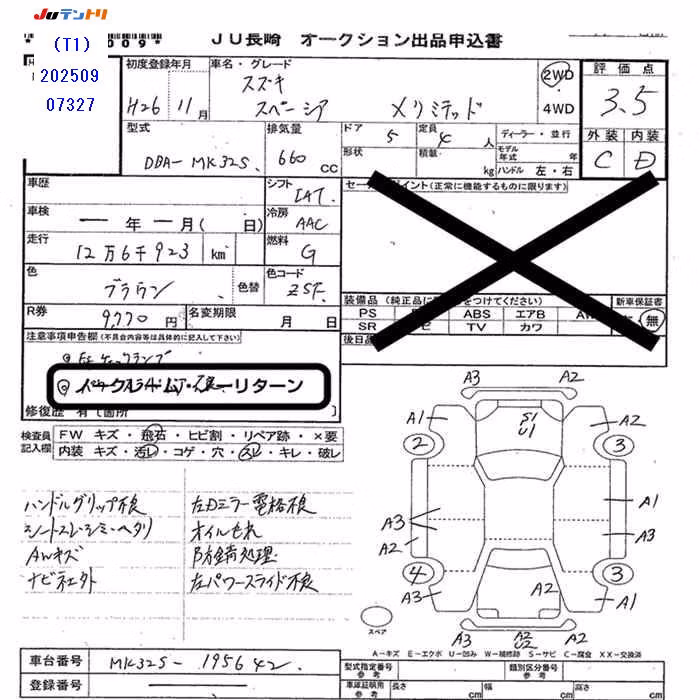 JUテントリ
009*
JU長崎 オークション出品申込書
(T1)
202509
07327
初度登録年月
車名・グレード
スズキ
スペーシア
メリミテッド
H26 11月
2WD
4WD
評価点
3.5
外装 内装
C D
型式
DBA-MK32S
排気量
660 cc
ドア 5
定員 4人
ディーラー・並行
形状
積載 kg
モデル年式 年
ハンドル 左・右
車歴
シフト
IAT
車検
年 月( 日)
冷房
AAC
走行
12万6千923 km
燃料
G
色
ブラウン
色替
色コード
ZSF
R券
9,770円
名変期限
月 日
セールスポイント(正常に機能するものに限ります)
装備品 (純正品に
をつけてください)
新車保証書
無
PS
ABS エアB
SR
TV カワ
後日品
注意事項申告欄(不具合内容等は具体的に記入して下さい)
ノーリターン
修復歴 有 [箇所 ]
検査員
記入欄
FW キズ・飛石・ヒビ割・リペア跡・×要
内装 キズ・汚レ・コゲ・穴・スレ・キレ・破レ
ハンドルグリップ不良
シートスレ・シミ・ヘタリ
AWキズ
ナビネェクト
左Dミラー電格不良
オイルもれ
防錆処理
左パワースライド不良
A3 A2
A1 S1 U1 A2
2 3
A3 A1
A2 A3
4 3
A3 A2 A1
A3 A2 U2 A2
スペア
A-キズ E-エクボ U-凹み W-補修跡 S-サビ C-腐食 XX-交換済
車台番号
MK32S-195642
登録番号
型式指定番号
類別区分番号
車庫証明用
参考
長さ cm
幅 cm
高さ cm